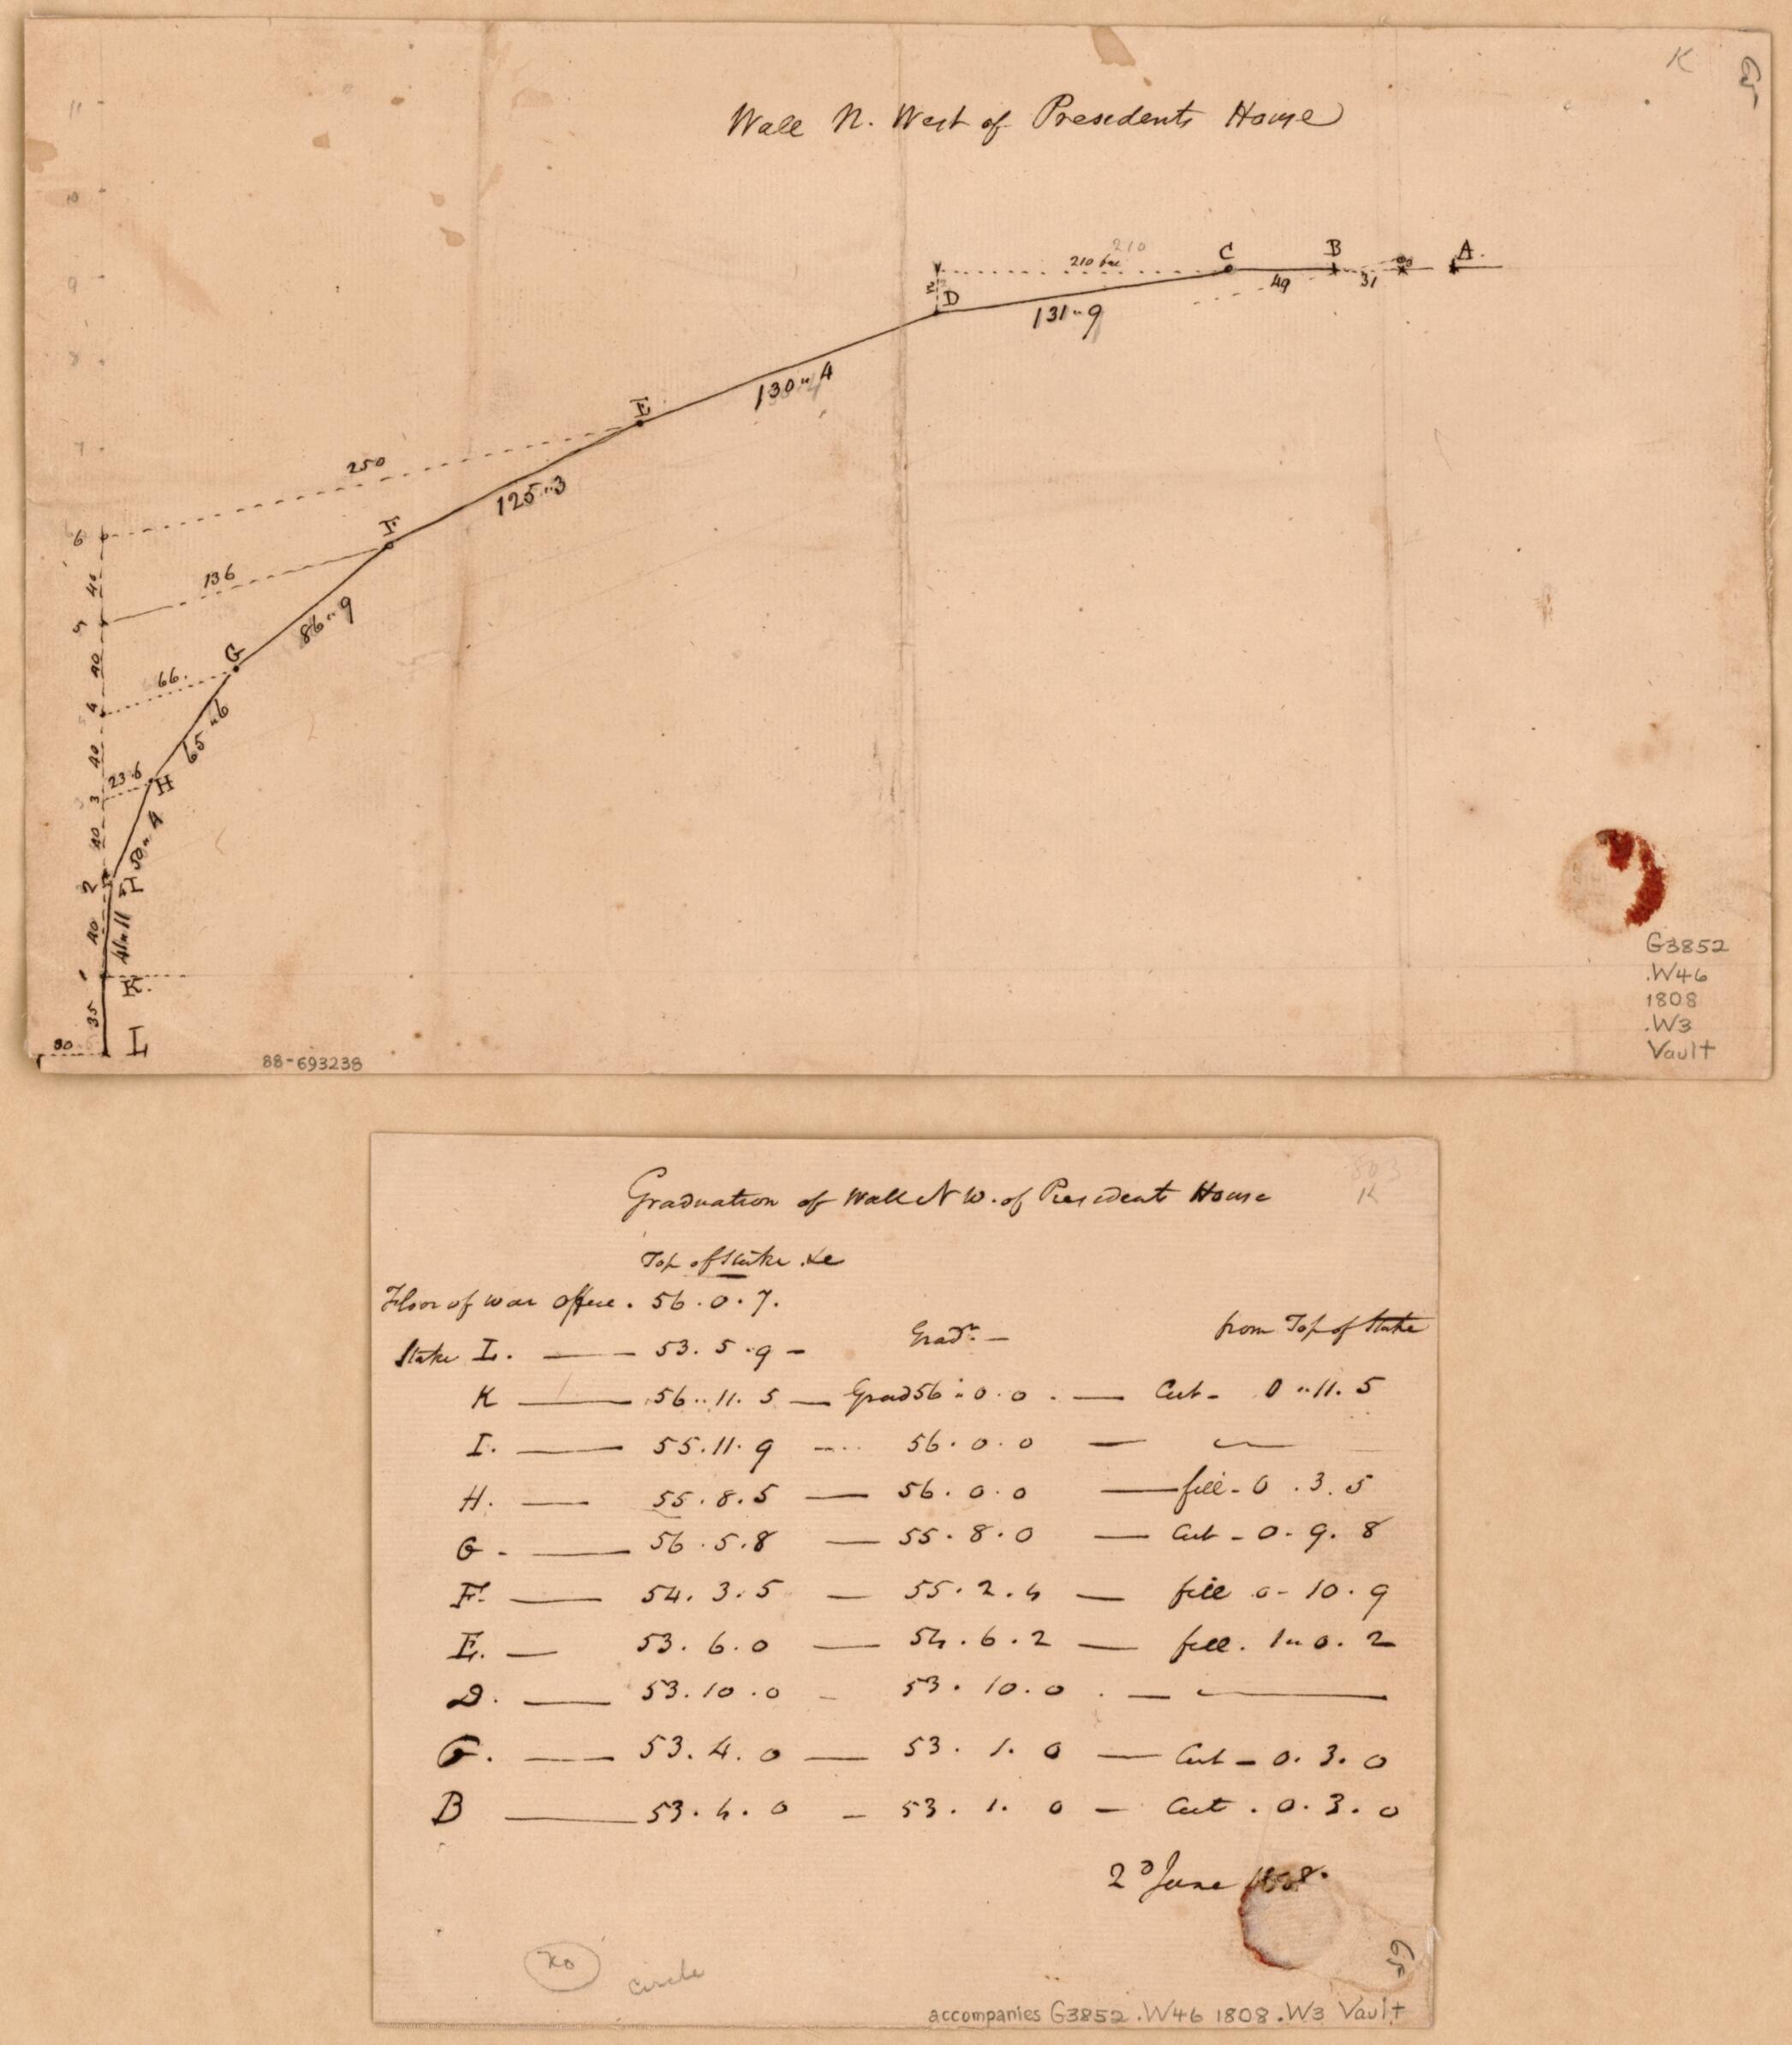 K
Wall N. West of Presedents House
11
10
9
8
7
210
210 bac
C
B
A.
D
49
31
131"9
130"4
E
250
125"3
6
F
40
136
86"9
5
G
40
66.
65"6
4
40
23.6
H
3
40
50"4
2
I
40
41"11
1
K.
35
80
L
88-693238
G3852
.W46
1808
.W3
Vault
803
K
Graduation of Wall N W. of President House
Top of Stake &c
Floor of war office. 56.0.7.
Grad.n — from Top of Stake
Stake L. — 53.5.9 —
K — 56..11.5 — Grad 56"0.0. — Cut - 0"11.5
I. — 55.11.9 .... 56.0.0 — —
H. — 55.8.5 — 56.0.0 — fill - 0.3.5
G - — 56.5.8 — 55.8.0 — Cut - 0.9.8
F. — 54.3.5 — 55.2.4 — fill 0-10.9
E. — 53.6.0 — 54.6.2 — fill. 1"0.2
D. — 53.10.0 - 53.10.0. — —
C. — 53.4.0 — 53.1.0 — Cut - 0.3.0
B — 53.4.0 — 53.1.0 — Cut. 0.3.0
2d June 1808.
20
circle
accompanies G3852 .W46 1808 .W3 Vault